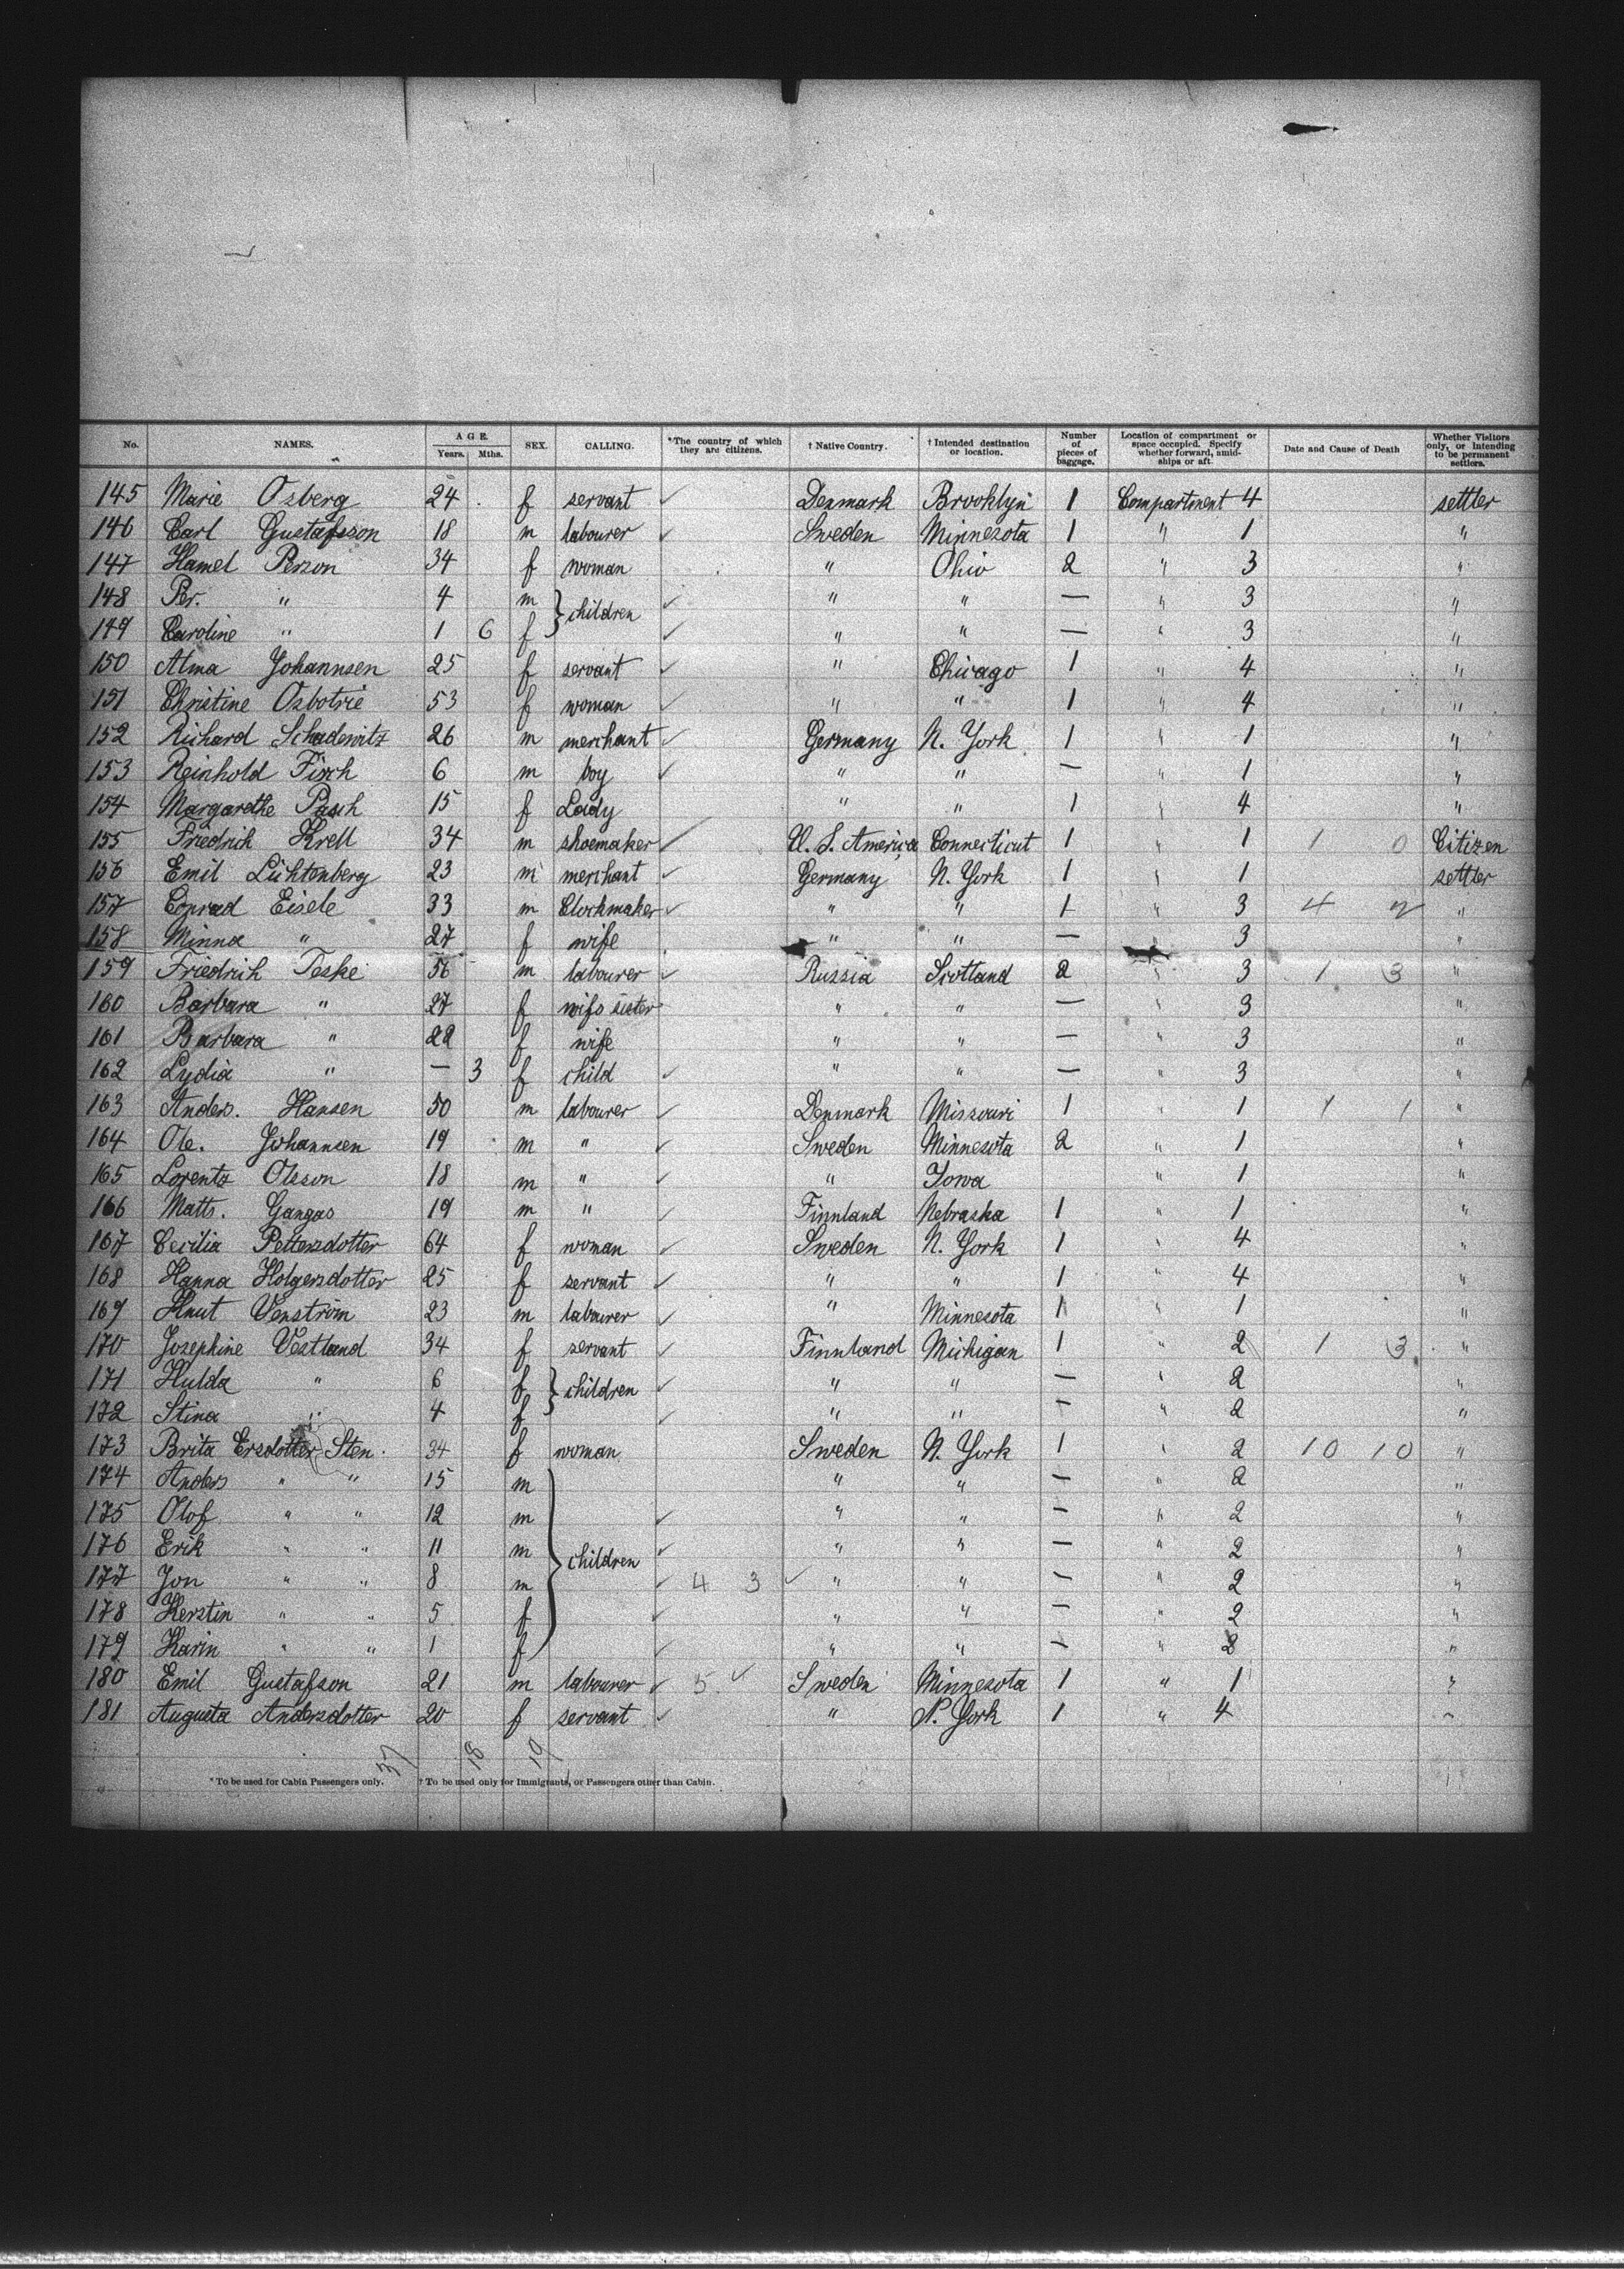 No. NAMES. AGE. Years. Mths. SEX. CALLING. *The country of which they are citizens. † Native Country. † Intended destination or location. Number of pieces of baggage. Location of compartment or space occupied. Specify whether forward, amidships or aft. Date and Cause of Death Whether Visitors only, or Intending to be permanent settlers.
145 Marie Osberg 24 f servant ✓ Denmark Brooklyn 1 Compartment 4 settler
146 Carl Gustafsson 18 m labourer ✓ Sweden Minnesota 1 " 1 "
147 Hamel Person 34 f woman " Ohio 2 " 3 "
148 Per. " 4 m } children ✓ " " — " 3 "
149 Caroline " 1 6 f ✓ " " — " 3 "
150 Alma Johannsen 25 f servant ✓ " Chicago 1 " 4 "
151 Christine Osbotrie 53 f woman ✓ " " 1 " 4 "
152 Richard Schadewitz 26 m merchant ✓ Germany N. York 1 " 1 "
153 Reinhold Fisch 6 m boy ✓ " " — " 1 "
154 Margarethe Pasch 15 f Lady " " 1 " 4 "
155 Friedrich Krell 34 m shoemaker ✓ U. S. America Connecticut 1 " 1 1 0 Citizen
156 Emil Lichtenberg 23 m merchant ✓ Germany N. York 1 " 1 settler
157 Conrad Eisele 33 m Clockmaker ✓ " " 1 " 3 4 2 "
158 Minna " 27 f wife " " — " 3 "
159 Friedrich Teske 56 m labourer ✓ Russia Scotland 2 " 3 1 3 "
160 Barbara " 27 f wifs sister " " — 3 "
161 Barbara " 22 f wife " " — " 3 "
162 Lydia " — 3 f child ✓ " " — " 3 "
163 Anders. Hansen 50 m labourer ✓ Denmark Missouri 1 " 1 1 1 "
164 Ole. Johannsen 19 m " ✓ Sweden Minnesota 2 " 1 "
165 Lorentz Olsson 18 m " ✓ " Iowa " 1 "
166 Matts. Gangas 19 m " ✓ Finnland Nebraska 1 " 1 "
167 Cecilia Pettersdotter 64 f woman ✓ Sweden N. York 1 " 4 "
168 Hanna Holgersdotter 25 f servant ✓ " " 1 " 4 "
169 Knut Venström 23 m labourer ✓ " Minnesota 1 " 1 "
170 Josephine Vestland 34 f servant ✓ Finnland Michigan 1 " 2 1 3 "
171 Hulda " 6 f } children ✓ " " — " 2 "
172 Stina " 4 f ✓ " " — " 2 "
173 Brita Ersdotter Sten. 34 f woman Sweden N. York 1 " 2 10 10 "
174 Anders " " 15 m " " — " 2 "
175 Olof " " 12 m ✓ " " — " 2 "
176 Erik " " 11 m } children ✓ " " — " 2 "
177 Jon " " 8 m ✓ 4 3 ✓ " " — " 2 "
178 Kerstin " " 5 f ✓ " " — " 2 "
179 Karin " " 1 f ✓ " " — " 2 "
180 Emil Gustafson 21 m labourer ✓ 5 ✓ Sweden Minnesota 1 " 1 "
181 Augusta Andersdotter 20 f servant ✓ " N. York 1 " 4 "
37 18 19
* To be used for Cabin Passengers only. † To be used only for Immigrants, or Passengers other than Cabin.